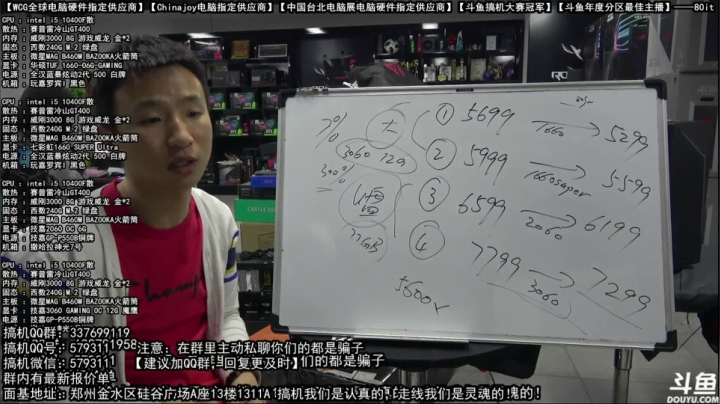 【WCG全球电脑硬件指定供应商】【Chinajoy电脑指定供应商】【中国台北电脑展电脑硬件指定供应商】【斗鱼搞机大赛冠军】【斗鱼年度分区最佳主播】——80it
CPU : intel i5 10400F散
散热 : 赛普雷冷山GT400
内存 : 威刚3000 8G 游戏威龙 金*2
固态 : 西数240G M.2 绿盘
主板 : 微星MAG B460M BAZOOKA火箭筒
显卡 : 华硕TUF 1660-O6G-GAMING
电源 : 全汉蓝暴炫动2代 500 白牌
机箱 : 玩嘉罗宾Ⅰ黑色
CPU : intel i5 10400F散
散热 : 赛普雷冷山GT400
内存 : 威刚3000 8G 游戏威龙 金*2
固态 : 西数240G M.2 绿盘
主板 : 微星MAG B460M BAZOOKA火箭筒
显卡 : 七彩虹1660 SUPER Ultra
电源 : 全汉蓝暴炫动2代 500 白牌
机箱 : 玩嘉罗宾Ⅰ黑色
CPU : intel i5 10400F散
散热 : 赛普雷冷山GT400
内存 : 威刚3000 8G 游戏威龙 金*2
固态 : 西数240G M.2 绿盘
主板 : 微星MAG B460M BAZOOKA火箭筒
显卡 : 技嘉2060 OC 6G
电源 : 技嘉GP-P550B铜牌
机箱 : 撒哈拉神光7号
CPU : intel i5 10400F散
散热 : 赛普雷冷山GT400
内存 : 威刚3000 8G 游戏威龙 金*2
固态 : 西数240G M.2 绿盘
主板 : 微星MAG B460M BAZOOKA火箭筒
显卡 : 技嘉3060 GAMING OC 12G 魔鹰
电源 : 技嘉GP-P550B铜牌
① 5699 1660 → 5299
② 5999 1660super → 5599
③ 6599 2060 → 6199
④ 7799 3060 → 7299
3060 12G
300%
5600x
搞机QQ群: 337699119
搞机QQ号: 5793111958 注意: 在群里主动私聊你们的都是骗子
搞机微信: 5793111 【建议加QQ群, 回复更及时】
群内有最新报价单
面基地址: 郑州金水区硅谷广场A座13楼1311A1 搞机我们是认真的!走线我们是灵魂的!
斗鱼
DOUYU.COM